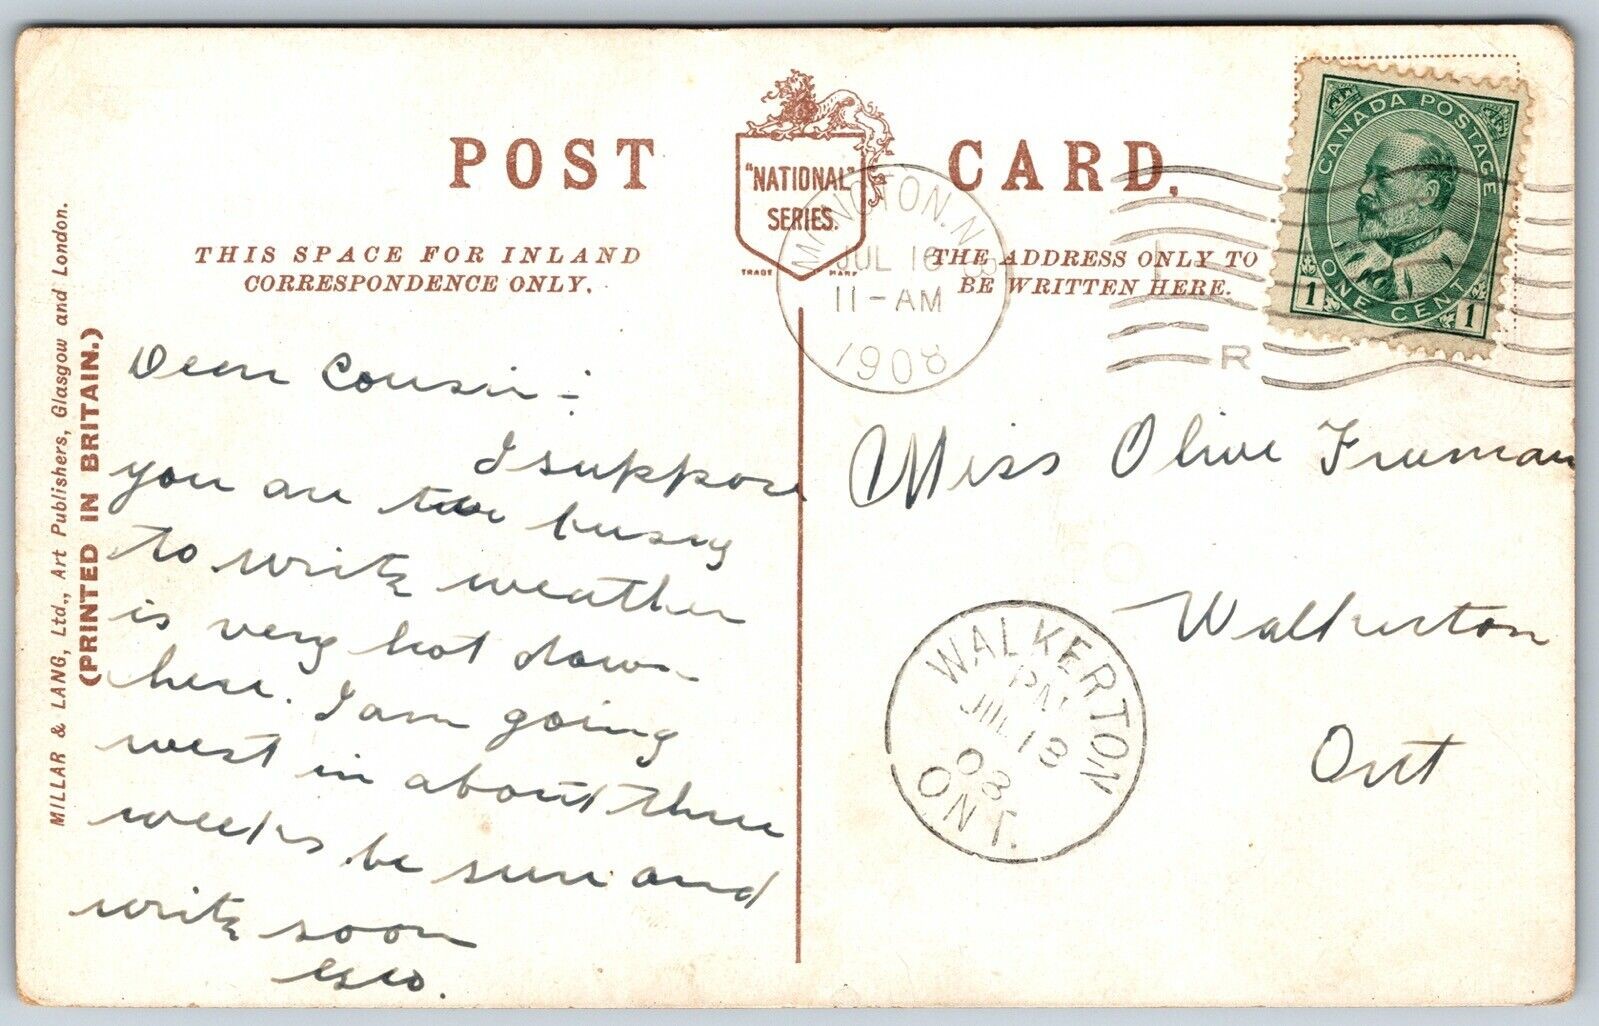 POST CARD.
"NATIONAL"
SERIES.
TRADE MARK
THIS SPACE FOR INLAND
CORRESPONDENCE ONLY.
THE ADDRESS ONLY TO
BE WRITTEN HERE.
MILLAR & LANG, Ltd., Art Publishers, Glasgow and London.
(PRINTED IN BRITAIN.)
CANADA POSTAGE
1 ONE CENT 1
MONCTON. N.B
JUL 16
11-AM
1908
R
Dear Cousin :-
I suppose
you are too busy
to write weather
is very hot down
here. I am going
west in about three
weeks be sure and
write soon
Geo.
Miss Olive Fruman
Walkerton
Ont
WALKERTON
PM
JUL 18
08
ONT.